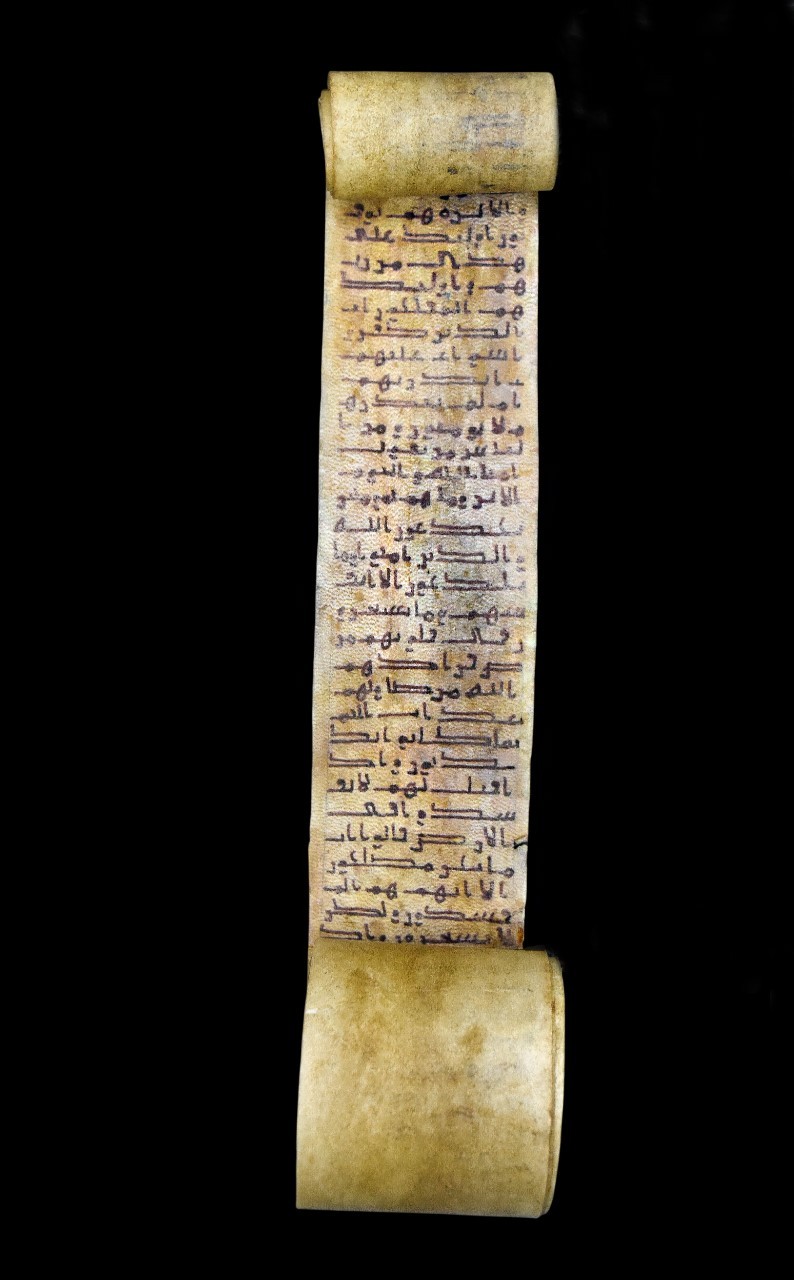 و بالاخره هم يوقنو
ن اوليك على
هدى من ر
هم و اوليك
هم المفلحون ان
الذين كفروا
سوا عليهم
انذرتهم
ام لم تنذر ه
م لا يومنون و من ا
لناس من يقول
امنا بالله و باليوم
الاخر و ما هم بمومنين
يخدعون الله
و الذين امنوا و ما
يخدعون الا انف
سهم و ما يشعرون
في قلوبهم مر
ض فزادهم
الله مرضا و لهم
عذاب اليم
بما كانوا يكذ
بون و اذا
قيل لهم لا تف
سدوا في
الارض قالوا ان
ما نحن مصلحون
الا انهم هم الم
فسدون و لكن
لا يشعرون و اذا